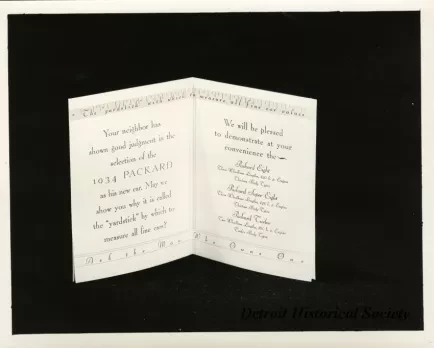 The "yardstick" with which to measure all fine car values
Your neighbor has
shown good judgment in the
selection of the
1934 PACKARD
as his new car. May we
show you why it is called
the "yardstick" by which to
measure all fine cars?
We will be pleased
to demonstrate at your
convenience the—
Packard Eight
Packard Super Eight
Packard Twelve
Ask the Man Who Owns One
Detroit Historical Society